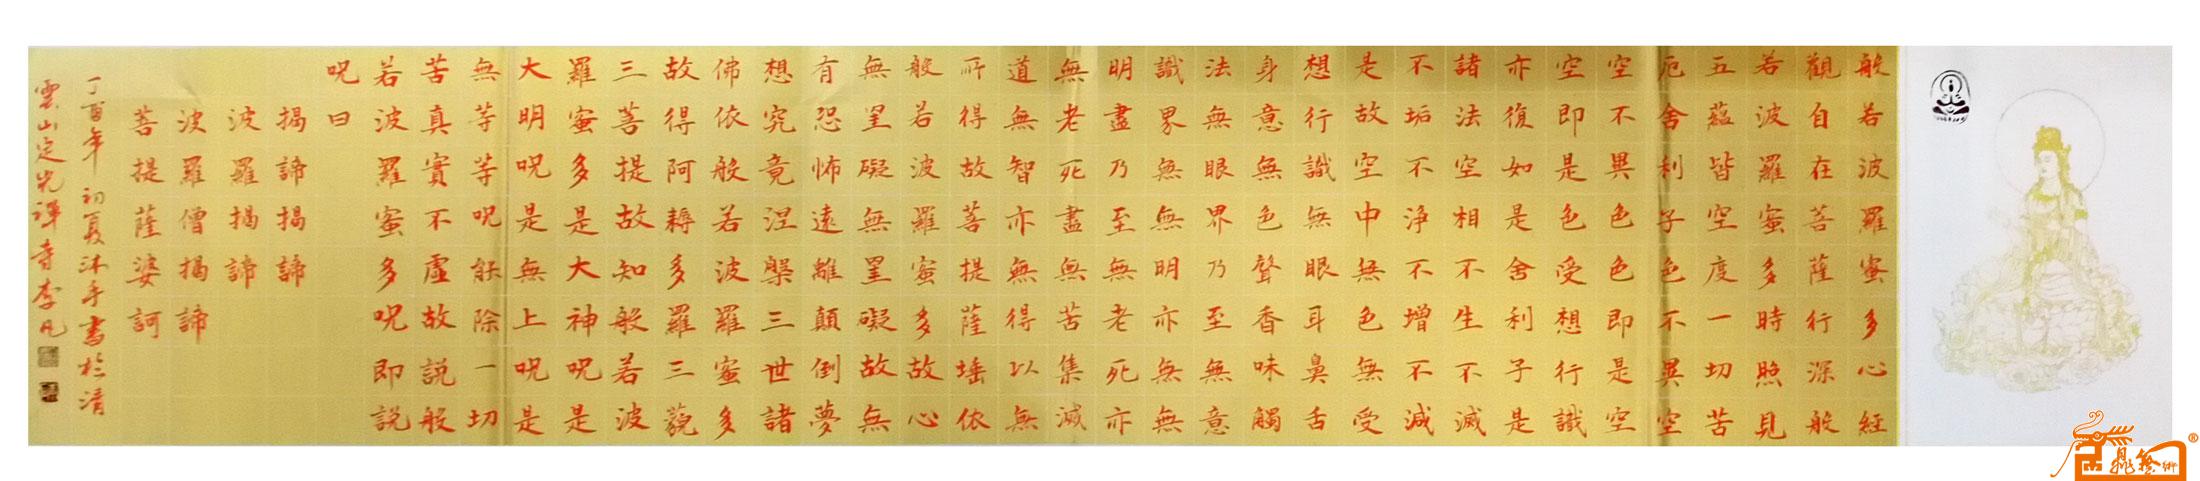 般若波羅蜜多心經
觀自在菩薩行深般
若波羅蜜多時照見
五蘊皆空度一切苦
厄舍利子色不異空
空不異色色即是空
空即是色受想行識
亦復如是舍利子是
諸法空相不生不滅
不垢不淨不增不減
是故空中無色無受
想行識無眼耳鼻舌
身意無色聲香味觸
法無眼界乃至無意
識界無無明亦無無
明盡乃至無老死亦
無老死盡無苦集滅
道無智亦無得以無
所得故菩提薩埵依
般若波羅蜜多故心
無罣礙無罣礙故無
有恐怖遠離顛倒夢
想究竟涅槃三世諸
佛依般若波羅蜜多
故得阿耨多羅三藐
三菩提故知般若波
羅蜜多是大神呪是
大明呪是無上呪是
無等等呪能除一切
苦真實不虛故説般
若波羅蜜多呪即説
呪曰
揭諦揭諦
波羅揭諦
波羅僧揭諦
菩提薩婆訶
丁酉年初夏沐手書於清
雲山定光禪寺李凡